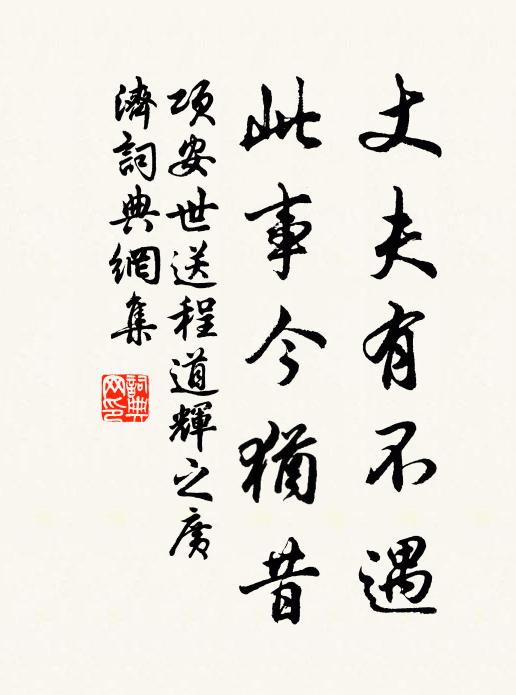 丈夫有不遇
此事今猶昔
項安世送程道輝之廣
濟詞典網集
詞典網印